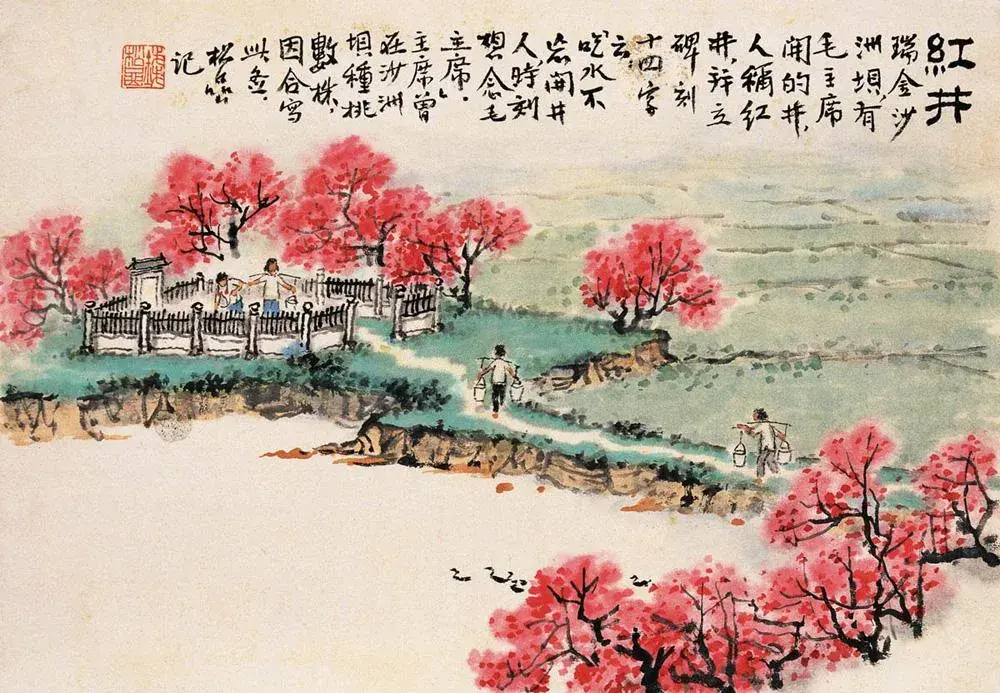 紅井
瑞金沙
洲垻,有
毛主席
開的井,
人稱紅
井,并立
碑刻
十四字
云:
吃水不
忘開井
人,時刻
想念毛
主席。
主席曾
在沙洲
垻種桃
數株,
因合寫
此意。
松嵒
記